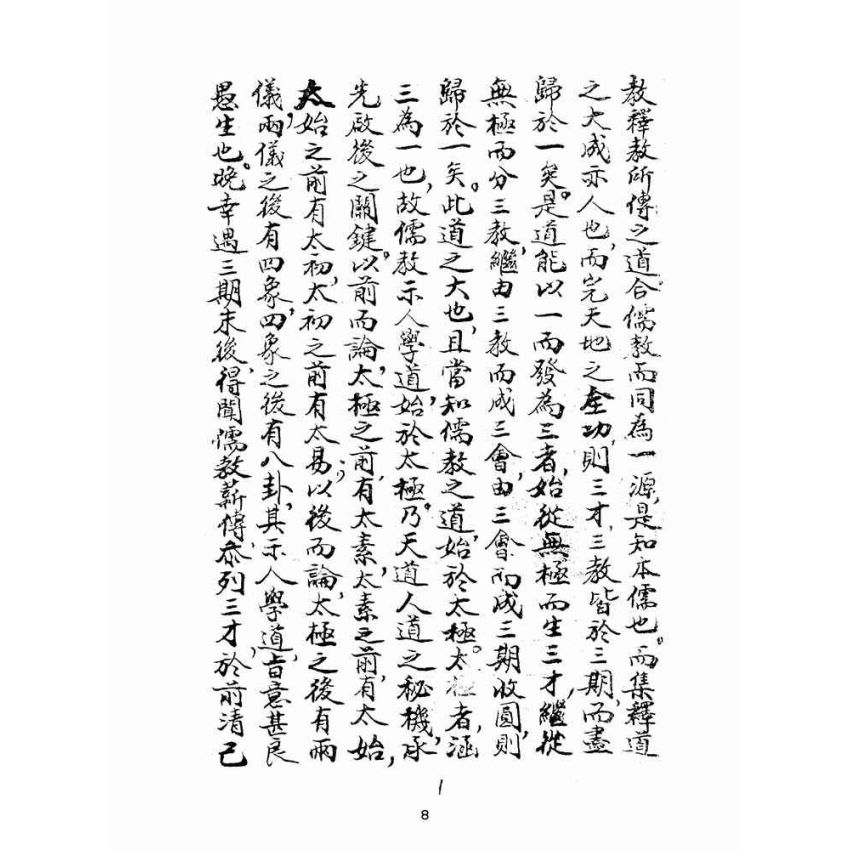 教釋教所傳之道合儒教而同為一源，是知本儒也。而集釋道
之大成亦人也，而完天地之全功，則三才三教皆於三期，而盡
歸於一矣。是道能以一而發為三者，始從無極而生三才，繼從
無極而分三教，繼由三教而成三會，由三會而成三期收圓，則
歸於一矣。此道之大也，且當知儒教之道，始於太極。太極者，涵
三為一也，故儒教示人學道，始於太極。乃天道人道之秘機，承
先啟後之關鍵。以前而論，太極之前，有太素，太素之前，有太始，
太始之前有太初，太初之前有太易；以後而論，太極之後有兩
儀，兩儀之後有四象，四象之後有八卦，其示人學道，旨意甚良
愚生也晚。幸遇三期末後，得聞儒教薪傳，忝列三才於前清己
1
8